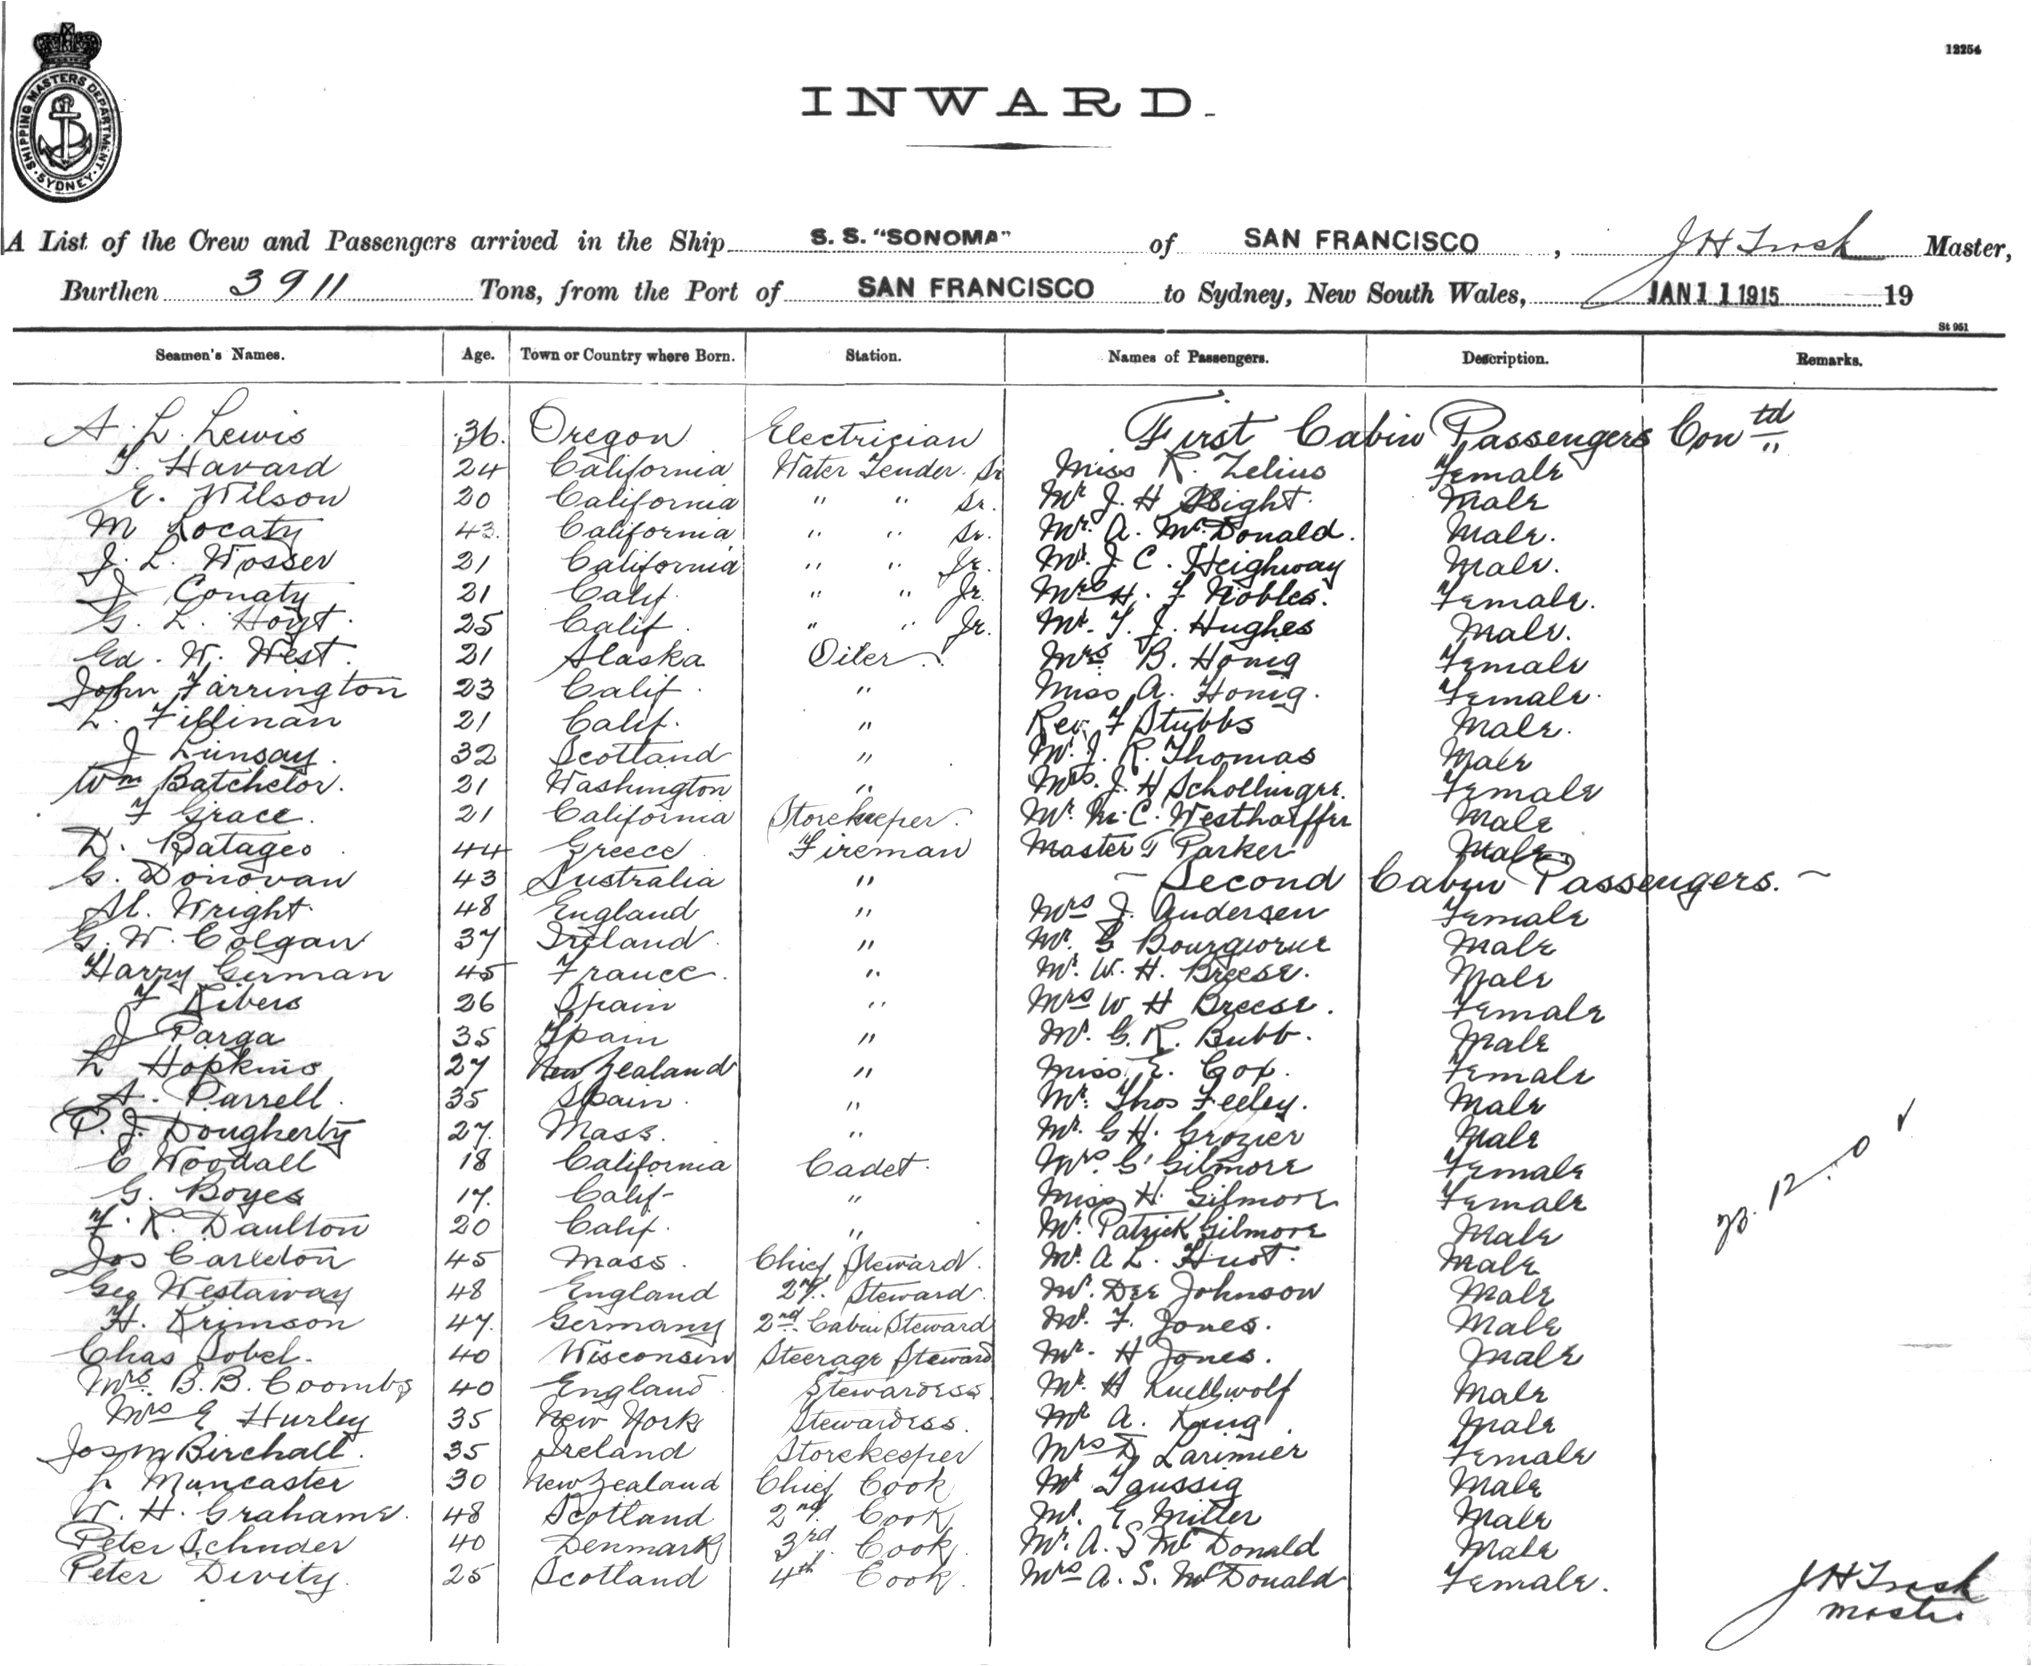 12254
SHIPPING MASTERS DEPARTMENT · SYDNEY ·
INWARD.
A List of the Crew and Passengers arrived in the Ship S. S. "SONOMA" of SAN FRANCISCO, J H Trask Master,
Burthen 3911 Tons, from the Port of SAN FRANCISCO to Sydney, New South Wales, JAN 11 1915 19
St 951
Seamen's Names. Age. Town or Country where Born. Station. Names of Passengers. Description. Remarks.
A. L. Lewis 36. Oregon Electrician First Cabin Passengers Con td "
T. Havard 24 California Water Tender Sr Miss K. Zelius Female
E. Wilson 20 California " " Sr. Mr J. H Male
M Locaty 43. California " " Sr. Mr. A. McDonald. Male.
J. L. Wosser 21 California " " Jr. Mr. J C. Heighway Male.
J Conaty 21 Calif. " " Jr. Mrs H. F Nobles. Female.
G. L. Hoyt. 25 Calif. " " Jr. Mr. T. J. Hughes Male.
Ed. W. West. 21 Alaska Oiler. Mrs B. Honig Female
John Farrington 23 Calif. " Miss A. Honig. Female.
L. 21 Calif. " Rev. F Stubbs Male.
J Linsay. 32 Scotland " Mr. J. R. Thomas Male
Wm Batchelor. 21 Washington " Mrs. J. H Schollinger. Female
F Grace. 21 California Storekeeper. Mr. M. C. Westhaffer Male
D. Batages. 44 Greece Fireman Master T Parker Male.
G. Donovan 43 Australia " – Second Cabin Passengers. –
Al. Wright. 48 England " Mrs J. Andersen Female
G. W. Colgan 37 Ireland. " Mr. G Male
Harry German 45 France. " Mr. W. H. Breese. Male
F Ribers 26 Spain " Mrs W H Breese. Female
J Parga 35 Spain " Mr. G. R. Bubb. Male
L Hopkins 27 New Zealand " Miss E. Cox. Female
A. Parrell. 35 Spain. " Mr. Thos Feeley. Male
P. J. Dougherty 27. Mass. " Mr. G H. Grozier Male
C Woodall 18 California Cadet. Mrs. G Gilmore Female
G. Boyes 17. Calif- " Miss H. Gilmore Female
F. R. Daulton 20 Calif. " Mr. Patrick Gilmore Male
Jos Carleton 45 Mass. Chief Steward. Mr. A L. Huot. Male
Geo Westaway 48 England 2nd. Steward. Mr. Dee Johnson Male
H. Krimson 47. Germany 2nd Cabin Steward Mr. F. Jones. Male
Chas Sobel. 40 Wisconsin Steerage Steward Mr. H Jones. Male
Mrs. B. B. Coombs 40 England Stewardess. Mr. H Kuellwolf Male
Mrs E Hurley 35 New York Stewardess. Mr A. King Male
Jos M Birchall. 35 Ireland Storekeeper Mrs D Larimier Female
L Muncaster 30 New Zealand Chief Cook Mr Taussig Male
W. H. Grahame. 48 Scotland 2nd. Cook Mr. E Miller Male
Peter Schuder 40 Denmark 3rd. Cook. Mr. A. S McDonald Male
Peter Divity. 25 Scotland 4th Cook. Mrs A. S. McDonald Female.
J H Trask
Master